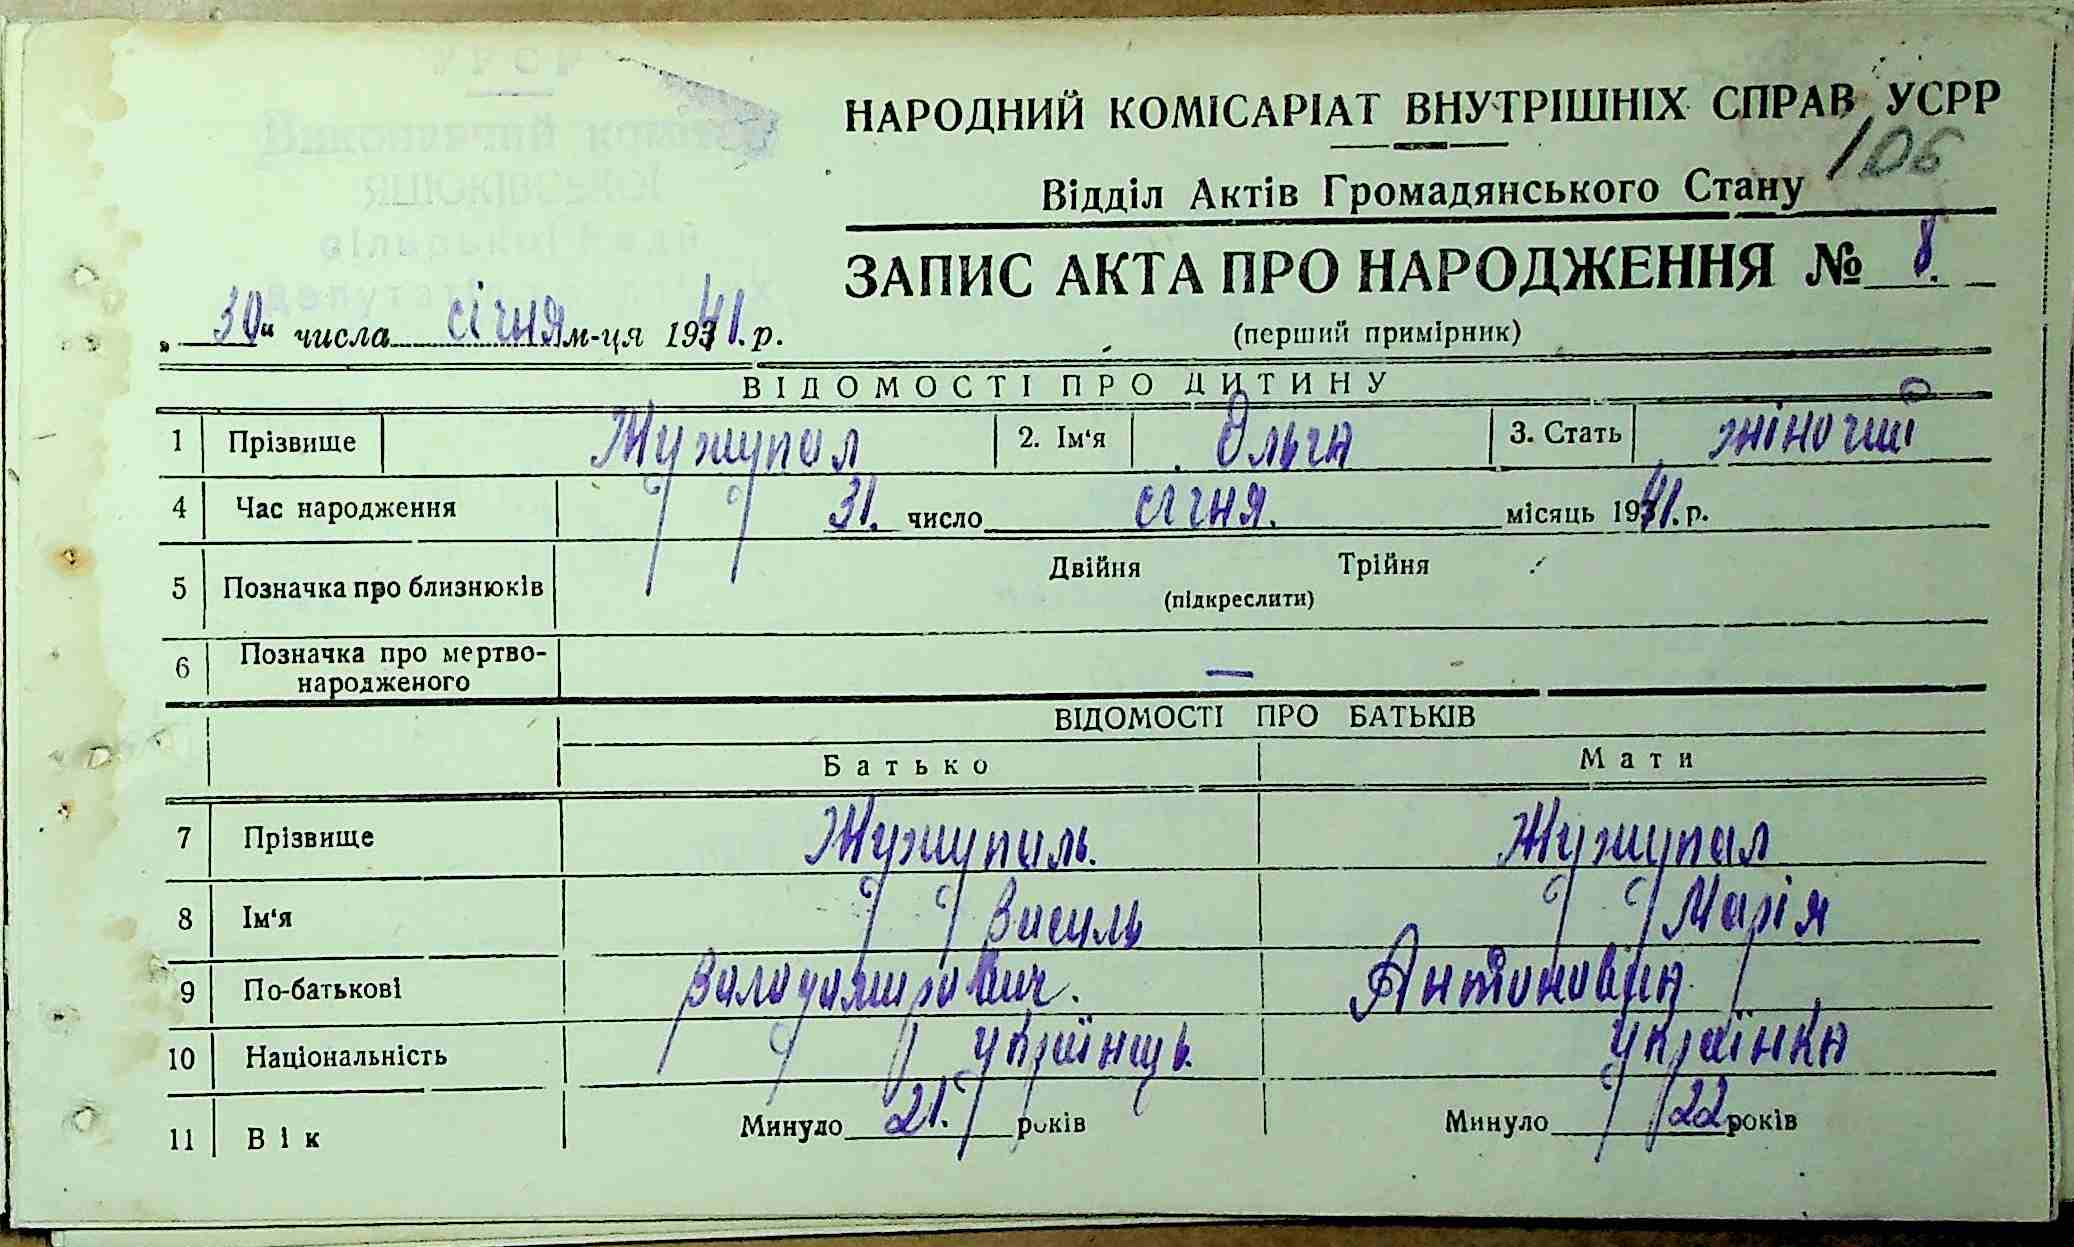 НАРОДНИЙ КОМІСАРІАТ ВНУТРІШНІХ СПРАВ УСРР
106
Відділ Актів Громадянського Стану
ЗАПИС АКТА ПРО НАРОДЖЕННЯ № 8.
„30“ числа січня м-ця 1941. р.
(перший примірник)
ВІДОМОСТІ ПРО ДИТИНУ
1 Прізвище Жужупал 2. Ім‘я Ольга 3. Стать жіночий
4 Час народження 31. число січня. місяць 1941. р.
5 Позначка про близнюків Двійня Трійня
(підкреслити)
6 Позначка про мертво-
народженого —
ВІДОМОСТІ ПРО БАТЬКІВ
Батько Мати
7 Прізвище Жужупаль. Жужупал
8 Ім‘я Василь Марія
9 По-батькові Володимирович. Антоновна
10 Національність українець. українка
11 Вік Минуло 21. років Минуло 22 років